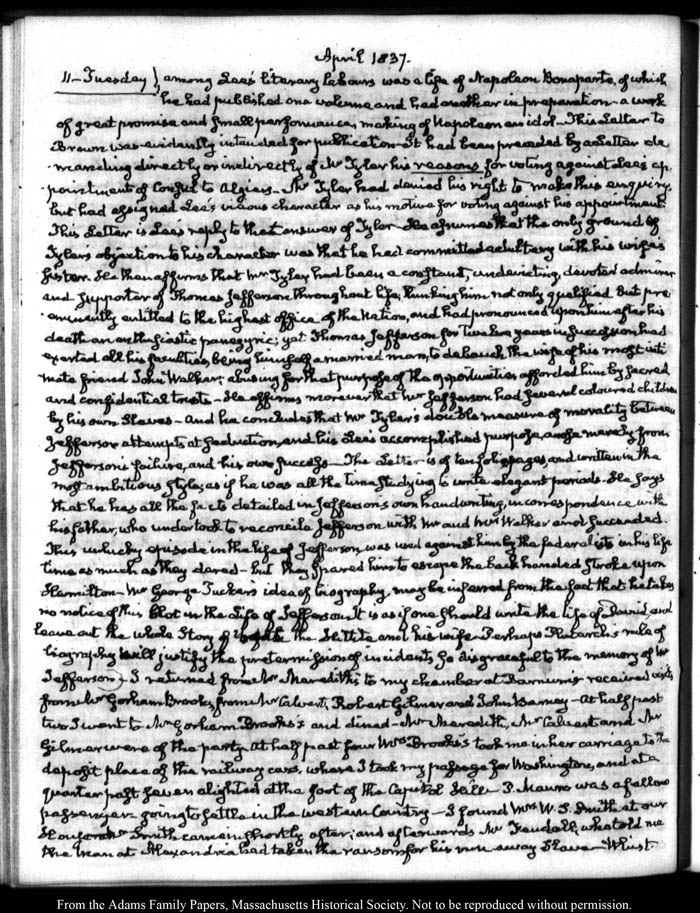 April 1837.
11 - Tuesday } among Lee's literary labours was a life of Napoleon Bonaparte, of which
he had published one volume and had another in preparation - a work
of great promise and small performance, making of Napoleon an idol - This Letter to
Brown was evidently intended for publication - It had been preceded by a Letter de
manding directly or indirectly of Mr Tyler his reasons for voting against Lee's ap
pointment of Consul to Algiers - Mr Tyler had denied his right to make this enquiry
but had assigned Lee's vicious character as his motive for voting against his appointment.
This Letter is Lee's reply to that answer of Tyler - He assumes that the only ground of
Tyler's objection to his character was that he had committed adultery with his wife's
sister. He then affirms that Mr Tyler had been a constant, undeviating, devoted admirer
and supporter of Thomas Jefferson throughout life; thinking him not only qualified but pre
eminently entitled to the highest office of the Nation, and had pronounced upon him after his
death an enthusiastic panegyric; yet Thomas Jefferson for twelve years in succession had
exerted all his faculties, being himself a married man, to debauch the wife of his most inti
mate friend John Walker; abusing for that purpose the opportunities afforded him by sacred
and confidential trusts - He affirms moreover that Mr Jefferson had several coloured children
by his own Slaves - And he concludes that Mr Tyler's double measure of morality between
Jefferson attempts at seduction, and his Lee's accomplished purpose, arose merely from
Jefferson's failure, and his own success - The Letter is of ten folio pages, and written in the
most ambitious style; as if he was all the time studying to write elegant periods. He says
that he has all the facts detailed in Jefferson's own handwriting, in correspondence with
his father, who undertook to reconcile Jefferson with Mr and Mrs Walker and succeeded.
This unlucky episode in the life of Jefferson was used against him by the federalists in his life
time as much as they dared - but they spared him to escape the back handed stroke upon
Hamilton - Mr George Tucker's idea of biography may be inferred from the fact that he takes
no notice of this blot in the Life of Jefferson. It is as if one should write the life of David, and
leave out the whole Story of the Hittite and his wife Perhaps Plutarch's rule of
biography will justify the pretermission of incidents so disgraceful to the memory of Mr
Jefferson) I returned from Mr Meredith's to my chamber at Barnum's received visits
from Mr Gorham Brooks, from Mr Calvert, Robert Gilmor and John Barney - At half past
two I went to Mr Gorham Brooks's and dined - Mr Meredith, Mr Calvert and Mr
Gilmor were of the party. At half past four Mrs Brooks's took me in her carriage to the
deposit place of the railway cars, where I took my passage for Washington, and at a
quarter past seven alighted at the foot of the Capitol hill - P. Mauro was a fellow
passenger - going to settle in the western Country - I found Mrs W. S. Smith at our
House Mr Smith came in shortly after; and afterwards Mr Fendall, who told me
the man at Alexandria had taken the ransom for his run away Slave - Whist
From the Adams Family Papers, Massachusetts Historical Society. Not to be reproduced without permission.